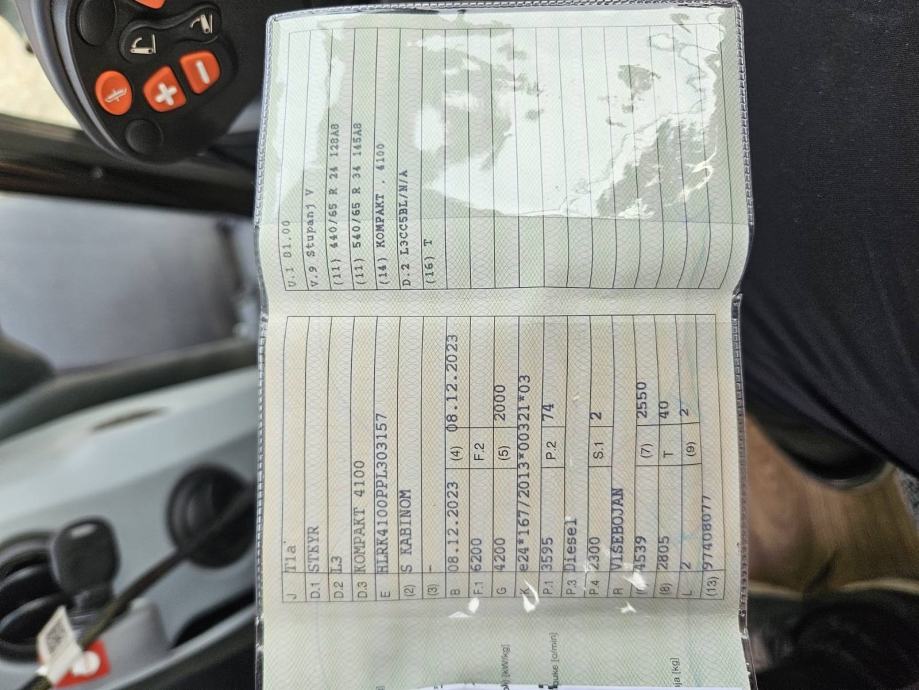 J T1a
D.1 STEYR
D.2 L3
D.3 KOMPAKT 4100
E HLRK4100PPL303157
(2) S KABINOM
(3) -
B 08.12.2023 (4) 08.12.2023
F.1 6200 F.2
G 4200 (5) 2000
K e24*167/2013*00321*03
P.1 3595 P.2 74
P.3 Diesel
P.4 2300 S.1 2
R VIŠEBOJAN
4539 (7) 2550
(8) 2805 T 40
L 2 (9) 2
(13) 97408077
V.9 Stupanj V
(11) 440/65 R 24 128A8
(11) 540/65 R 34 145A8
(14) KOMPAKT . 4100
D.2 L3CC5BL/N/A
(16) T
[kW/kg]
[o/min]
[kg]